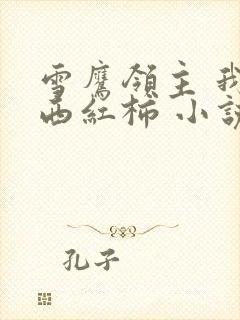 雪鷹領主 我
西紅柿 小説
孔子